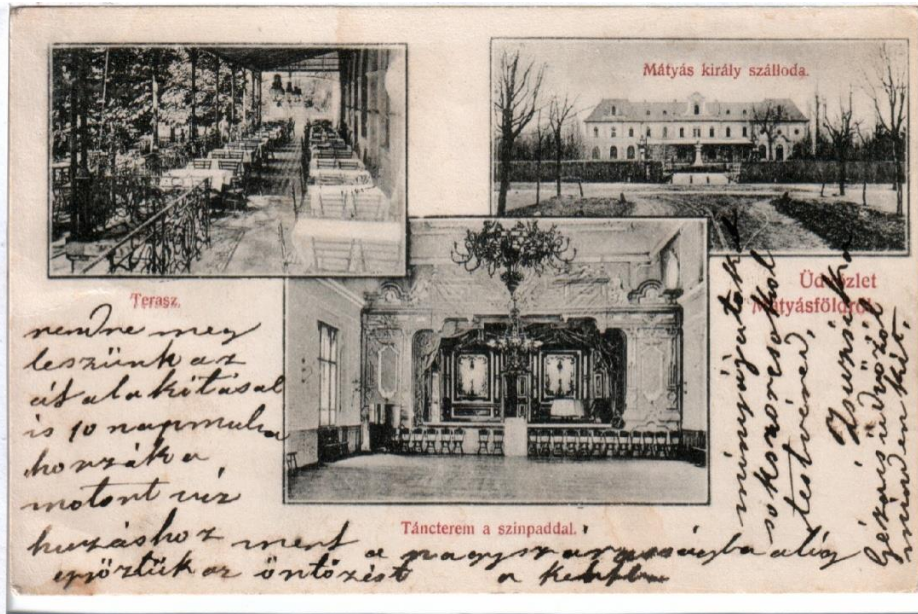 Mátyás király szálloda.
Terasz.
Üdvözlet
Mátyásföldről.
Táncterem a szinpaddal.
rendre meg
leszünk az
át alakitásal
is 10 nap mulva
hozzák a
motort viz
huzáshoz mert a nagy szarasságba alig
győztük az öntözést a kertbe
mindnyájatokat
sokszor csókol
testvéred,
Zsuzsika
Géza is üdvözöl
mindenkit.